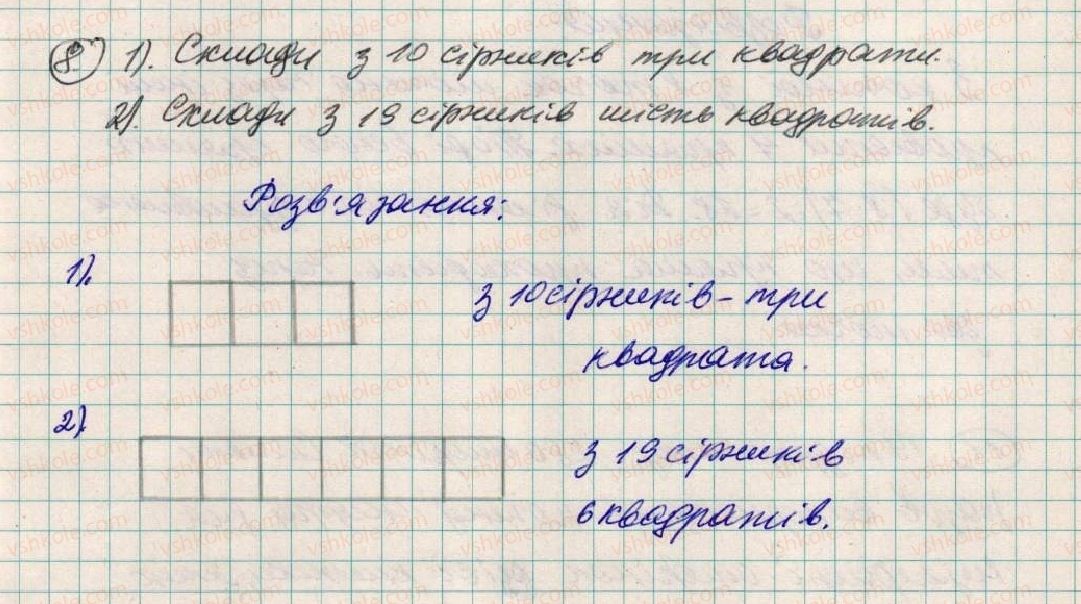 8) 1). Склади з 10 сірників три квадрати.
2). Склади з 19 сірників шість квадратів.
Розв'язання:
1).
з 10 сірників - три
квадрата.
2)
з 19 сірників
6 квадратів.